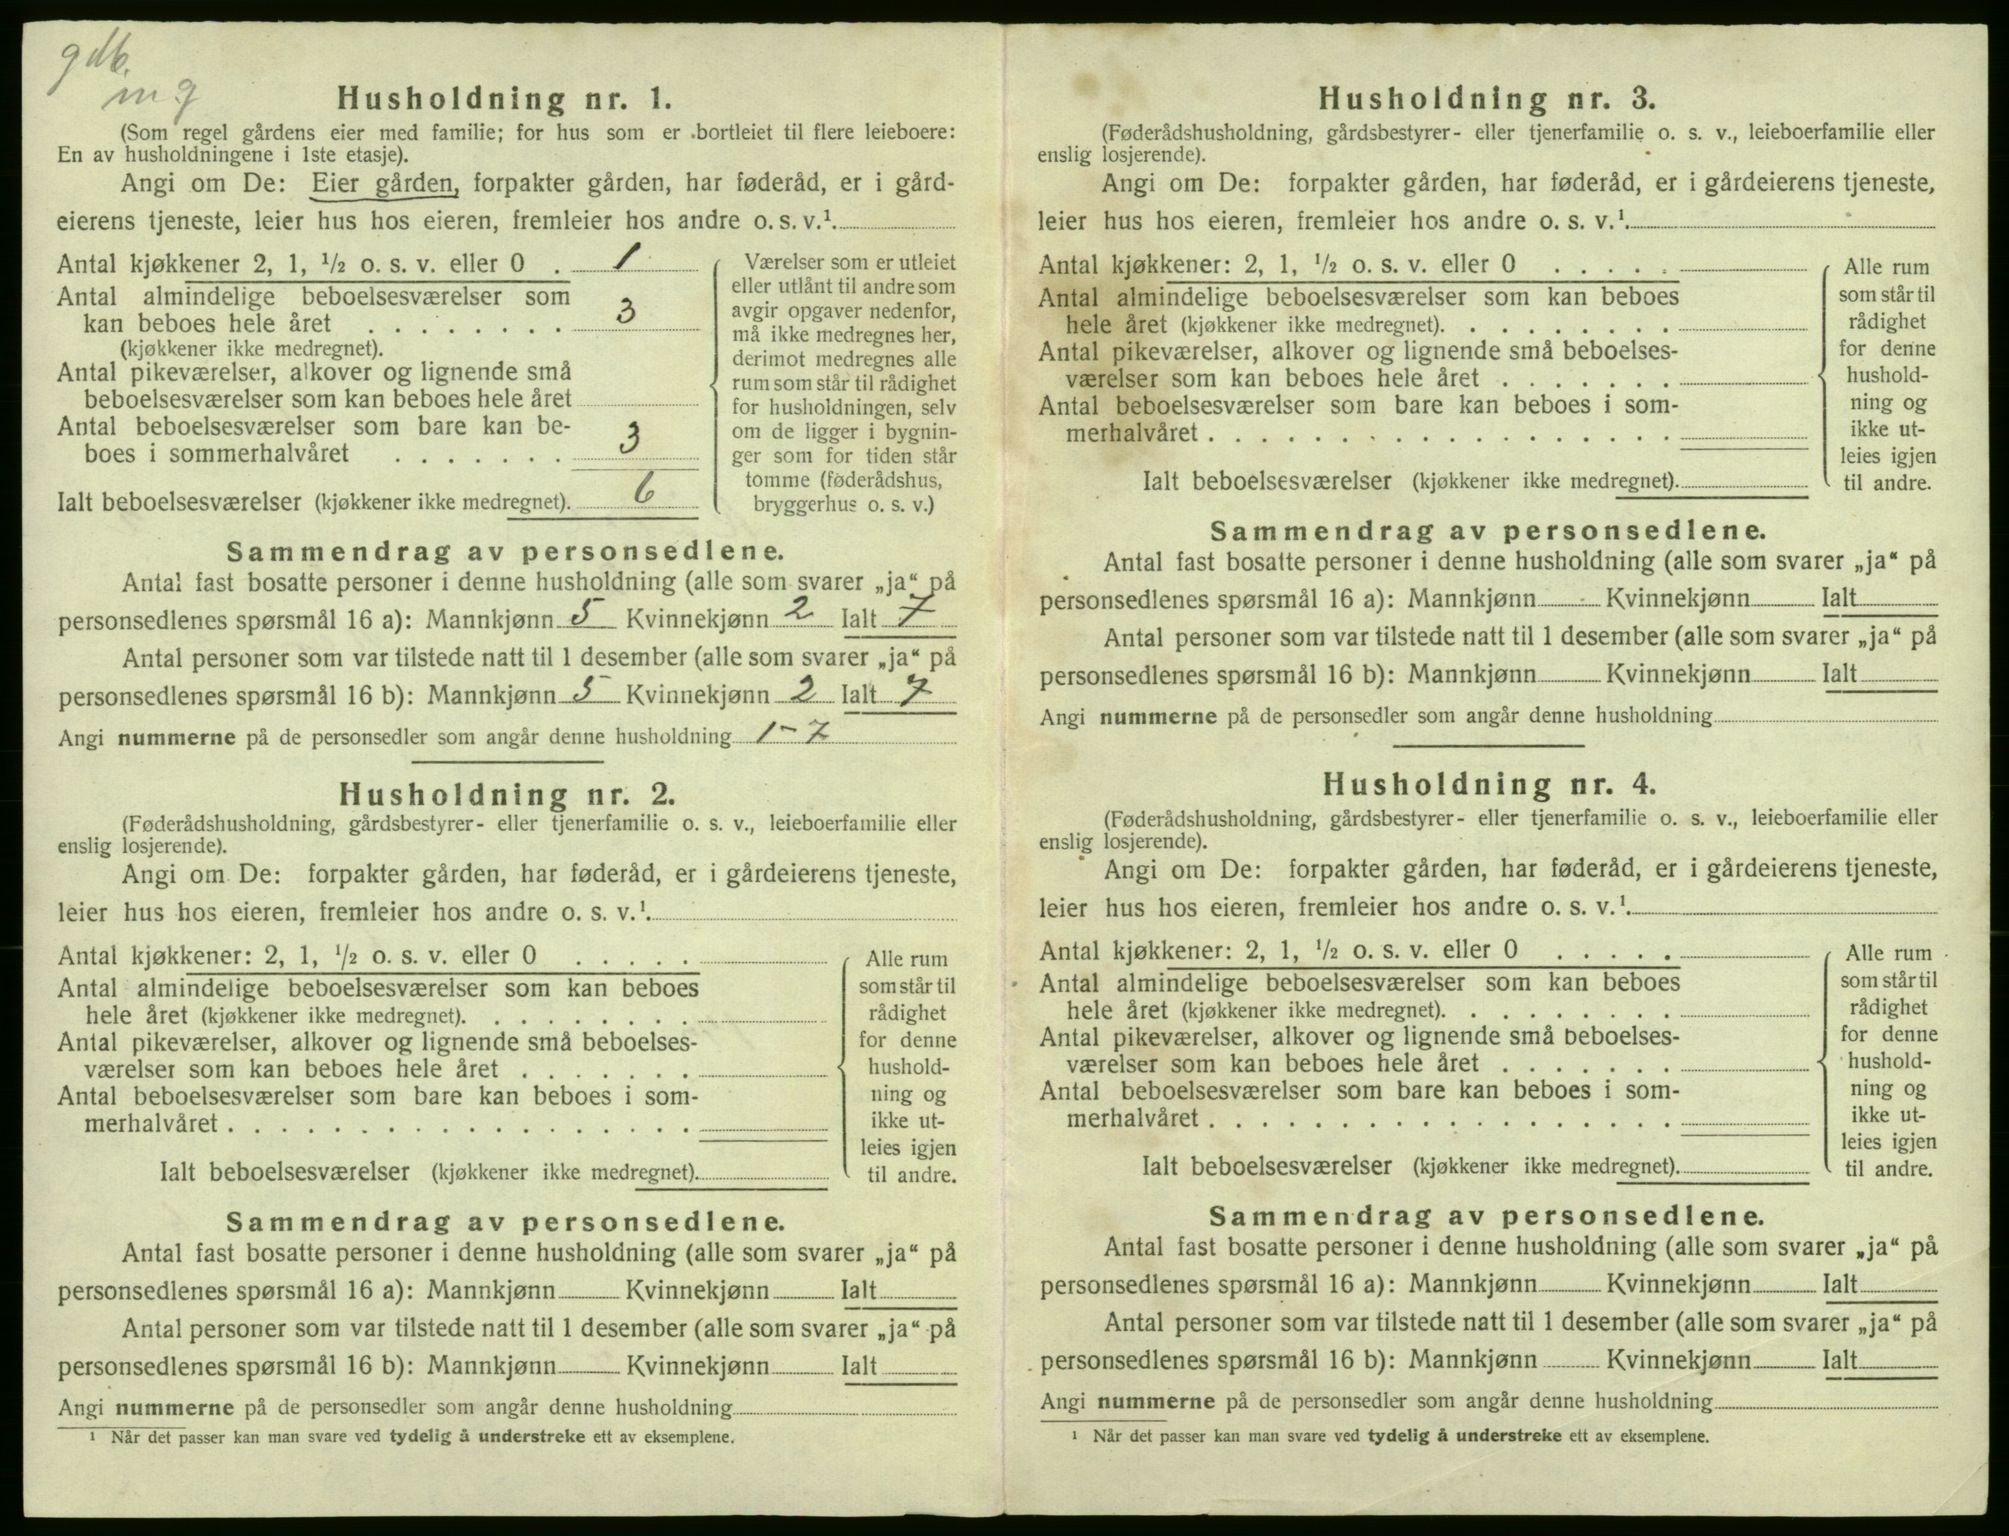 gdb.
m.g
Husholdning nr. 1.
(Som regel gårdens eier med familie; for hus som er bortleiet til flere leieboere:
En av husholdningene i 1ste etasje).
Angi om De: Eier gården, forpakter gården, har føderåd, er i gård-
eierens tjeneste, leier hus hos eieren, fremleier hos andre o. s. v.¹.
Antal kjøkkener 2, 1, ½ o. s. v. eller 0 . 1
Antal almindelige beboelsesværelser som
kan beboes hele året . . . . . . . . 3
(kjøkkener ikke medregnet).
Antal pikeværelser, alkover og lignende små
beboelsesværelser som kan beboes hele året
Antal beboelsesværelser som bare kan be-
boes i sommerhalvåret . . . . . . . 3
Ialt beboelsesværelser (kjøkkener ikke medregnet). 6
Værelser som er utleiet
eller utlånt til andre som
avgir opgaver nedenfor,
må ikke medregnes her,
derimot medregnes alle
rum som står til rådighet
for husholdningen, selv
om de ligger i bygnin-
ger som for tiden står
tomme (føderådshus,
bryggerhus o. s. v.)
Sammendrag av personsedlene.
Antal fast bosatte personer i denne husholdning (alle som svarer „ja“ på
personsedlenes spørsmål 16 a): Mannkjønn 5 Kvinnekjønn 2 Ialt 7
Antal personer som var tilstede natt til 1 desember (alle som svarer „ja“ på
personsedlenes spørsmål 16 b): Mannkjønn 5 Kvinnekjønn 2 Ialt 7
Angi nummerne på de personsedler som angår denne husholdning 1-7
Husholdning nr. 2.
(Føderådshusholdning, gårdsbestyrer- eller tjenerfamilie o. s. v., leieboerfamilie eller
enslig losjerende).
Angi om De: forpakter gården, har føderåd, er i gårdeierens tjeneste,
leier hus hos eieren, fremleier hos andre o. s. v.¹.
Antal kjøkkener: 2, 1, ½ o. s. v. eller 0 . . . . .
Antal almindelige beboelsesværelser som kan beboes
hele året (kjøkkener ikke medregnet). . . . . . . . .
Antal pikeværelser, alkover og lignende små beboelses-
værelser som kan beboes hele året . . . . . . .
Antal beboelsesværelser som bare kan beboes i som-
merhalvåret . . . . . . . . . . . . . . . . . .
Ialt beboelsesværelser (kjøkkener ikke medregnet).
Alle rum
som står til
rådighet
for denne
hushold-
ning og
ikke ut-
leies igjen
til andre.
Sammendrag av personsedlene.
Antal fast bosatte personer i denne husholdning (alle som svarer „ja“ på
personsedlenes spørsmål 16 a): Mannkjønn Kvinnekjønn Ialt
Antal personer som var tilstede natt til 1 desember (alle som svarer „ja“ på
personsedlenes spørsmål 16 b): Mannkjønn Kvinnekjønn Ialt
Angi nummerne på de personsedler som angår denne husholdning
¹ Når det passer kan man svare ved tydelig å understreke ett av eksemplene.
Husholdning nr. 3.
(Føderådshusholdning, gårdsbestyrer- eller tjenerfamilie o. s. v., leieboerfamilie eller
enslig losjerende).
Angi om De: forpakter gården, har føderåd, er i gårdeierens tjeneste,
leier hus hos eieren, fremleier hos andre o. s. v.¹.
Antal kjøkkener: 2, 1, ½ o. s. v. eller 0 . . . . .
Antal almindelige beboelsesværelser som kan beboes
hele året (kjøkkener ikke medregnet). . . . . . . . .
Antal pikeværelser, alkover og lignende små beboelses-
værelser som kan beboes hele året . . . . . . .
Antal beboelsesværelser som bare kan beboes i som-
merhalvåret . . . . . . . . . . . . . . . . . .
Ialt beboelsesværelser (kjøkkener ikke medregnet).
Alle rum
som står til
rådighet
for denne
hushold-
ning og
ikke ut-
leies igjen
til andre.
Sammendrag av personsedlene.
Antal fast bosatte personer i denne husholdning (alle som svarer „ja“ på
personsedlenes spørsmål 16 a): Mannkjønn Kvinnekjønn Ialt
Antal personer som var tilstede natt til 1 desember (alle som svarer „ja“ på
personsedlenes spørsmål 16 b): Mannkjønn Kvinnekjønn Ialt
Angi nummerne på de personsedler som angår denne husholdning
Husholdning nr. 4.
(Føderådshusholdning, gårdsbestyrer- eller tjenerfamilie o. s. v., leieboerfamilie eller
enslig losjerende).
Angi om De: forpakter gården, har føderåd, er i gårdeierens tjeneste,
leier hus hos eieren, fremleier hos andre o. s. v.¹.
Antal kjøkkener: 2, 1, ½ o. s. v. eller 0 . . . . .
Antal almindelige beboelsesværelser som kan beboes
hele året (kjøkkener ikke medregnet). . . . . . . . .
Antal pikeværelser, alkover og lignende små beboelses-
værelser som kan beboes hele året . . . . . . .
Antal beboelsesværelser som bare kan beboes i som-
merhalvåret . . . . . . . . . . . . . . . . . .
Ialt beboelsesværelser (kjøkkener ikke medregnet).
Alle rum
som står til
rådighet
for denne
hushold-
ning og
ikke ut-
leies igjen
til andre.
Sammendrag av personsedlene.
Antal fast bosatte personer i denne husholdning (alle som svarer „ja“ på
personsedlenes spørsmål 16 a): Mannkjønn Kvinnekjønn Ialt
Antal personer som var tilstede natt til 1 desember (alle som svarer „ja“ på
personsedlenes spørsmål 16 b): Mannkjønn Kvinnekjønn Ialt
Angi nummerne på de personsedler som angår denne husholdning
¹ Når det passer kan man svare ved tydelig å understreke ett av eksemplene.